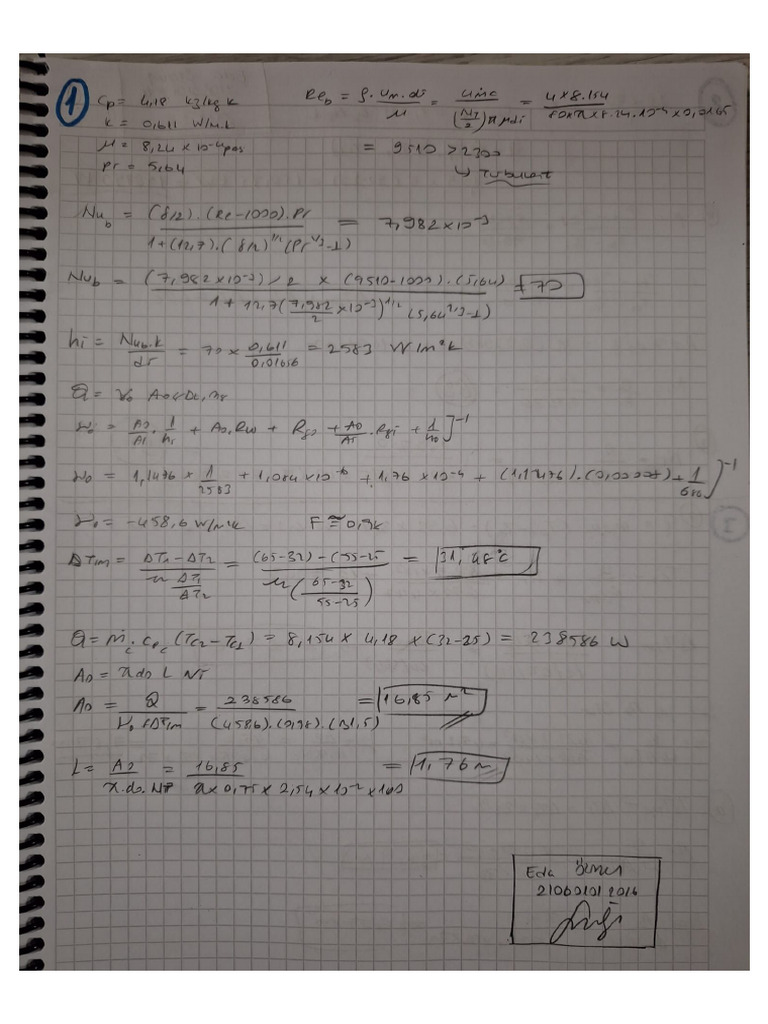 1
Cp = 4,18 kJ/kg K
k = 0,611 W/m.k
μ = 8,24 x 10⁻⁴ pas
pr = 5,64
Re_b = ρ.u_m.di / μ = 4ṁc / (N_T/2) π μ di = 4 x 8.154 / 50 x π x 8.24.10⁻⁴ x 0,0165
= 9510 > 2300
↳ Turbulent
Nu_b = (f/2).(Re-1000).Pr / 1+(12,7).(f/2)^1/2 (Pr^2/3-1) = 7,982 x 10⁻³
Nu_b = (7,982 x 10⁻³)/2 x (9510-1000).(5,64) / 1 + 12,7 (7,982/2 x 10⁻³)^1/2 (5,64^2/3-1) = 70
hi = Nu_b.k / di = 70 x 0,611 / 0,01656 = 2583 W/m²k
Q = U₀ A₀
U₀ = A₀/Ai . 1/hi + A₀.Rw + Rf₀ + A₀/Ai . Rfi + 1/h₀ ]⁻¹
U₀ = 1,1476 x 1/2583 + 1,084 x 10⁻⁶ + 1,76 x 10⁻⁴ + (1,1476).() + 1/ ]⁻¹
U₀ = -458,6 W/m²k F ≅ 0,98
ΔT_lm = ΔT1 - ΔT2 / ln ΔT1/ΔT2 = (65-32) - (55-25 / ln (65-32 / 55-25) = 31,48°C
Q = ṁc cpc (Tc2 - Tc1) = 8,154 x 4,18 x (32-25) = 238586 W
A₀ = π d₀ L NT
A₀ = Q / U₀ FΔT_lm = 238586 / (458,6).(0,98).(31,5) = 16,85 m²
L = A₀ / π.d₀.NT = 16,85 / π x 0,75 x 2,54 x 10⁻² x 160 = 1,76 m
Eda